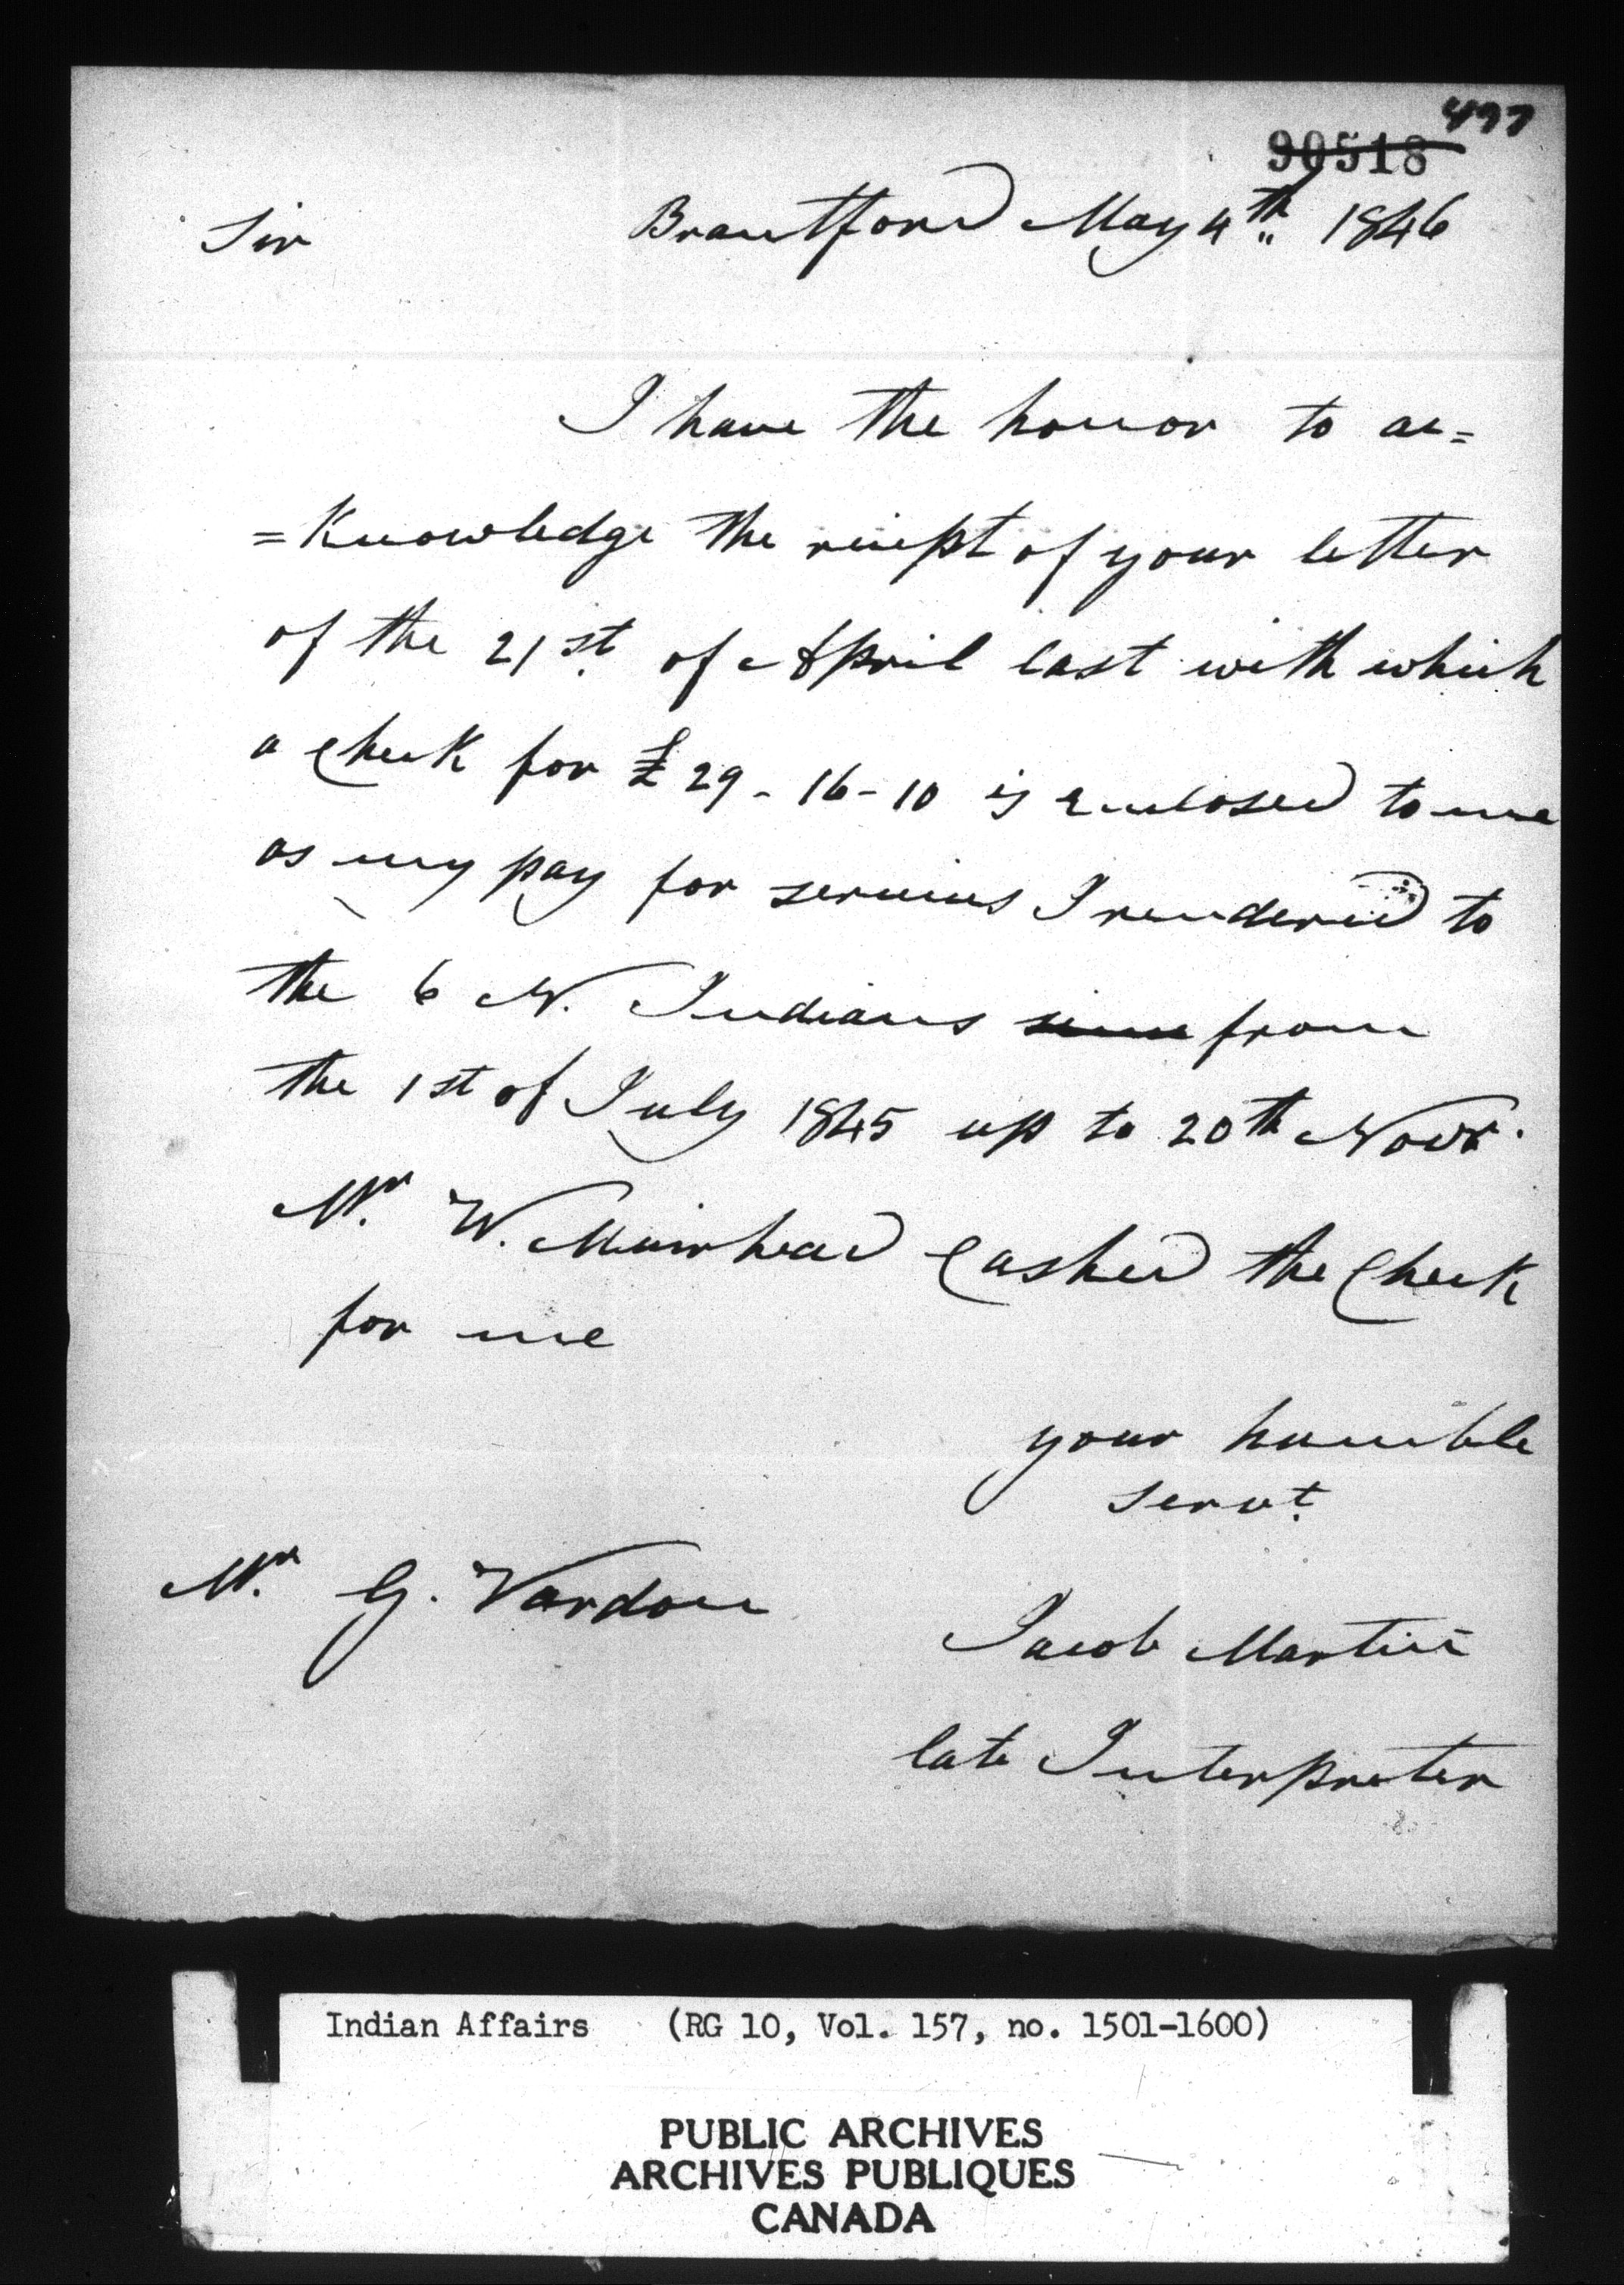 497
90518
Sir Brantford May 4th 1846
I have the honor to ac=
=Knowledge the reicpt of your letter
of the 21st. of April last with which
a Check for £29-16-10 is Enclosed to me
as my pay for services I rendered to
the 6 N. Indians since from
the 1st of July 1845 up to 20th Novr.
Mr. W. Muirhead Cashed the Check
for me
your humble
servt.
Mr. G. Vardon
Jacob Martin
late Interpreter
Indian Affairs (RG 10, Vol. 157, no. 1501-1600)
PUBLIC ARCHIVES
ARCHIVES PUBLIQUES
CANADA